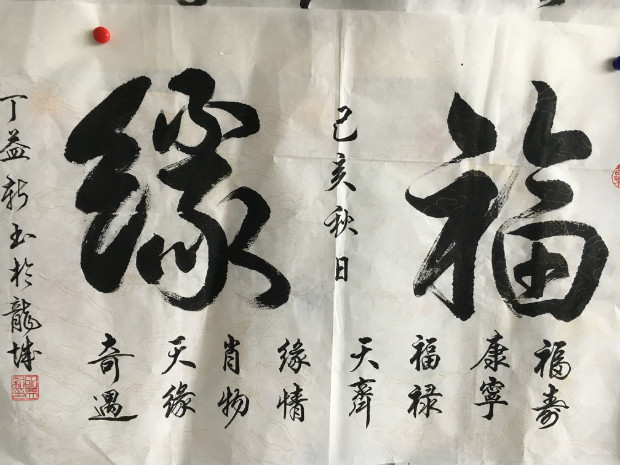 福缘
己亥秋日
福寿
康寧
福禄
天齊
缘情
肖物
天缘
奇遇
丁益新书於龍城